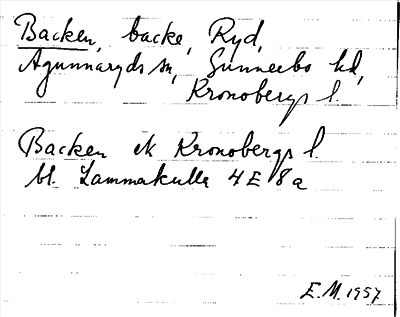 Backen, backe, Ryd,
Agunnaryds sn, Sunnerbo hd,
Kronobergs l.
Backen ek Kronobergs l.
bl. Lammakulla 4E 8a
E.M. 1957